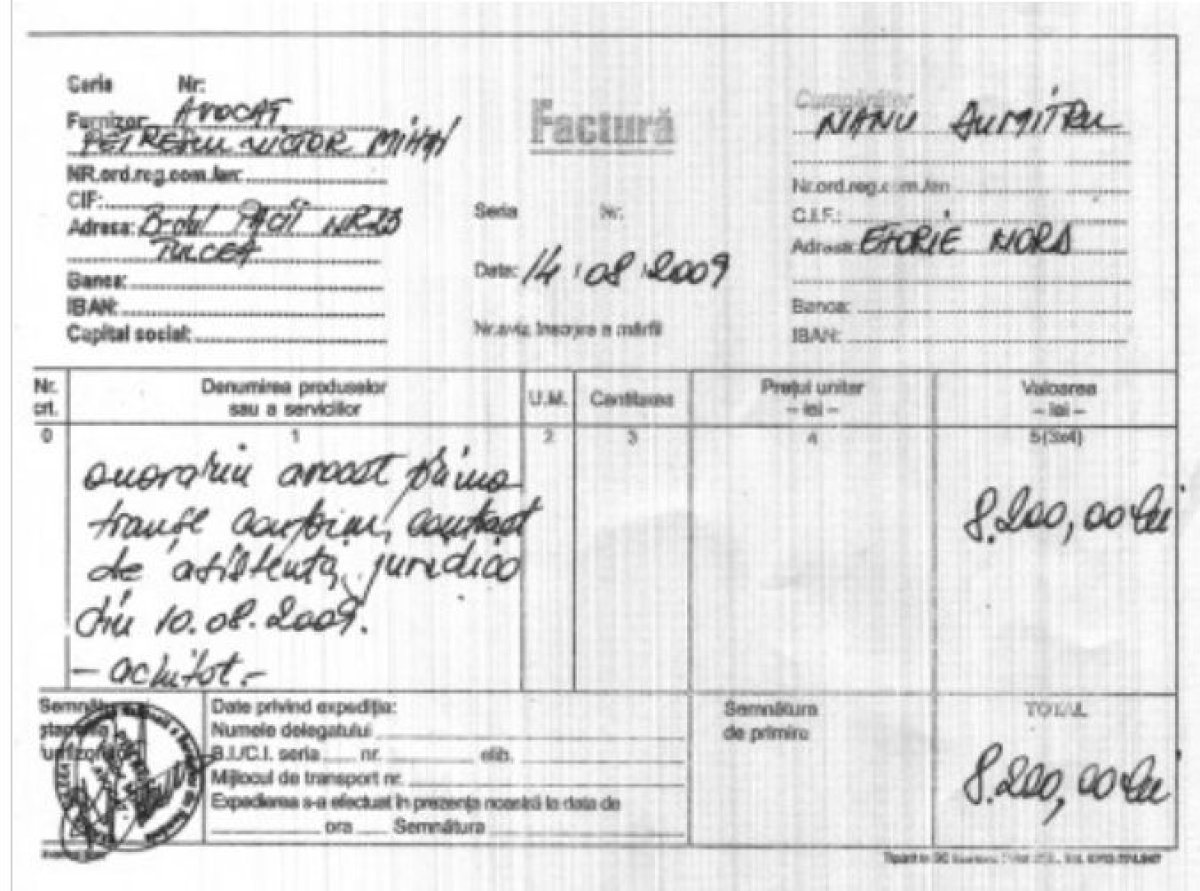 Seria Nr.
Furnizor: AVOCAT
VICTOR MIHAI
NR.ord.reg.com./an:
CIF:
Adresa: B-dul PĂCII NR 23
TULCEA
Banca:
IBAN:
Capital social:
Factură
Seria Nr.
Data: 14 08 2009
Nr.aviz însoțire a mărfii
Cumpărător
NANU DUMITRU
Nr.ord.reg.com./an
C.I.F.:
Adresa: EFORIE NORD
Banca:
IBAN:
Nr. crt. Denumirea produselor sau a serviciilor U.M. Cantitatea Prețul unitar – lei – Valoarea – lei –
0 1 2 3 4 5(3x4)
onorariu avocat prima
tranșe conform contract
de asistență juridică
din 10.08.2009.
– achitat –
8.200,00 lei
Semnătura
Date privind expediția:
Numele delegatului
B.I/C.I. seria nr. elib.
Mijlocul de transport nr.
Expedierea s-a efectuat în prezența noastră la data de
ora Semnătura
Semnătura
de primire
TOTAL
8.200,00 lei